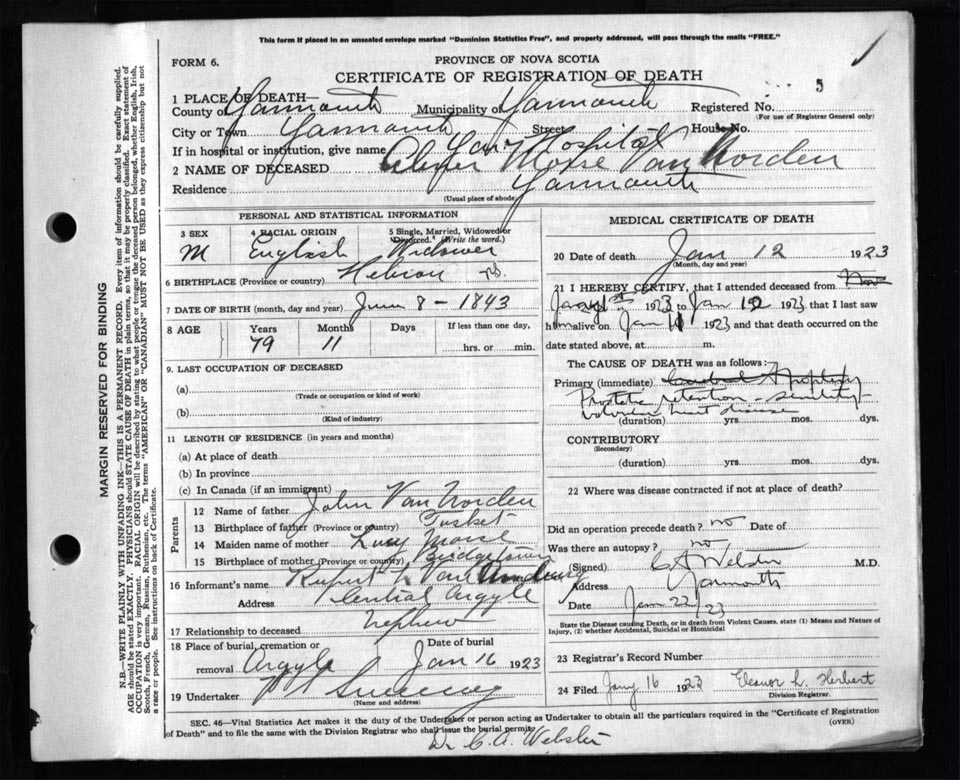 This form if placed in an unsealed envelope marked "Dominion Statistics Free", and properly addressed, will pass through the mails "FREE."
FORM 6.
PROVINCE OF NOVA SCOTIA
CERTIFICATE OF REGISTRATION OF DEATH
5
1 PLACE OF DEATH—
County of Yarmouth Municipality of Yarmouth Registered No.
(For use of Registrar General only)
City or Town Yarmouth Street House No.
If in hospital or institution, give name Yar. Hospital
2 NAME OF DECEASED Abner Morse Van Norden
Residence Yarmouth
(Usual place of abode)
PERSONAL AND STATISTICAL INFORMATION
3 SEX 4 RACIAL ORIGIN 5 Single, Married, Widowed or Divorced. (Write the word.)
M English Widower
6 BIRTHPLACE (Province or country) Hebron N.S.
7 DATE OF BIRTH (month, day and year) June 8 - 1843
8 AGE Years Months Days If less than one day,
79 11 hrs. or min.
9. LAST OCCUPATION OF DECEASED
(a)
(Trade or occupation or kind of work)
(b)
(Kind of industry)
11 LENGTH OF RESIDENCE (in years and months)
(a) At place of death
(b) In province
(c) In Canada (if an immigrant)
Parents
12 Name of father John Van Norden
13 Birthplace of father (Province or country) Tusket
14 Maiden name of mother Lucy Morse
15 Birthplace of mother (Province or country) Bridgetown
16 Informant's name Rupert Van
Address Central Argyle
17 Relationship to deceased Nephew
18 Place of burial, cremation or removal Argyle Date of burial Jan 16 1923
19 Undertaker Sweeney
(Name and address)
MEDICAL CERTIFICATE OF DEATH
20 Date of death Jan 12 1923
(Month, day and year)
21 I HEREBY CERTIFY, that I attended deceased from Nov
Jany 1st 1923 to Jan 12 1923 that I last saw
him alive on Jan 11 1923 and that death occurred on the
date stated above, at m.
The CAUSE OF DEATH was as follows:
Primary (immediate) Cerebral Apoplexy
Prostatic retention - senility
valvular heart disease
(duration) yrs. mos. dys.
CONTRIBUTORY
(Secondary)
(duration) yrs. mos. dys.
22 Where was disease contracted if not at place of death?
Did an operation precede death? no Date of
Was there an autopsy? no
(Signed) C A Webster M.D.
Address Yarmouth
Date Jan 22/23
State the Disease causing Death, or in death from Violent Causes, state (1) Means and Nature of Injury, (2) whether Accidental, Suicidal or Homicidal
23 Registrar's Record Number
24 Filed Jany 16 1923 Eleanor L. Herbert
Division Registrar.
SEC. 46—Vital Statistics Act makes it the duty of the Undertaker or person acting as Undertaker to obtain all the particulars required in the "Certificate of Registration
of Death" and to file the same with the Division Registrar who shall issue the burial permit.
(OVER)
Dr C. A. Webster
MARGIN RESERVED FOR BINDING
N.B.—WRITE PLAINLY WITH UNFADING INK—THIS IS A PERMANENT RECORD. Every item of information should be carefully supplied.
AGE should be stated EXACTLY. PHYSICIANS should STATE CAUSE OF DEATH in plain terms, so that it may be properly classified. Exact statement of
OCCUPATION is very important. RACIAL ORIGIN will be described by stating to what people or tongue the deceased person belonged, whether English, Irish,
Scotch, French, German, Russian, Ruthenian, etc. The terms "AMERICAN" OR "CANADIAN" MUST NOT BE USED as they express citizenship but not
a race or people. See instructions on back of Certificate.